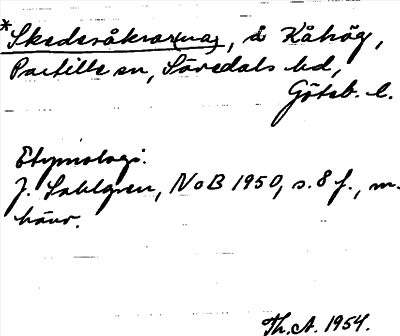 *Skedesåkrar(na), å Kåhög,
Partille sn, Sävedals hd,
Göteb. l.
Etymologi.
J. Sahlgren, NoB 1950, s. 8 f., m.
hänv.
Th. A. 1954.